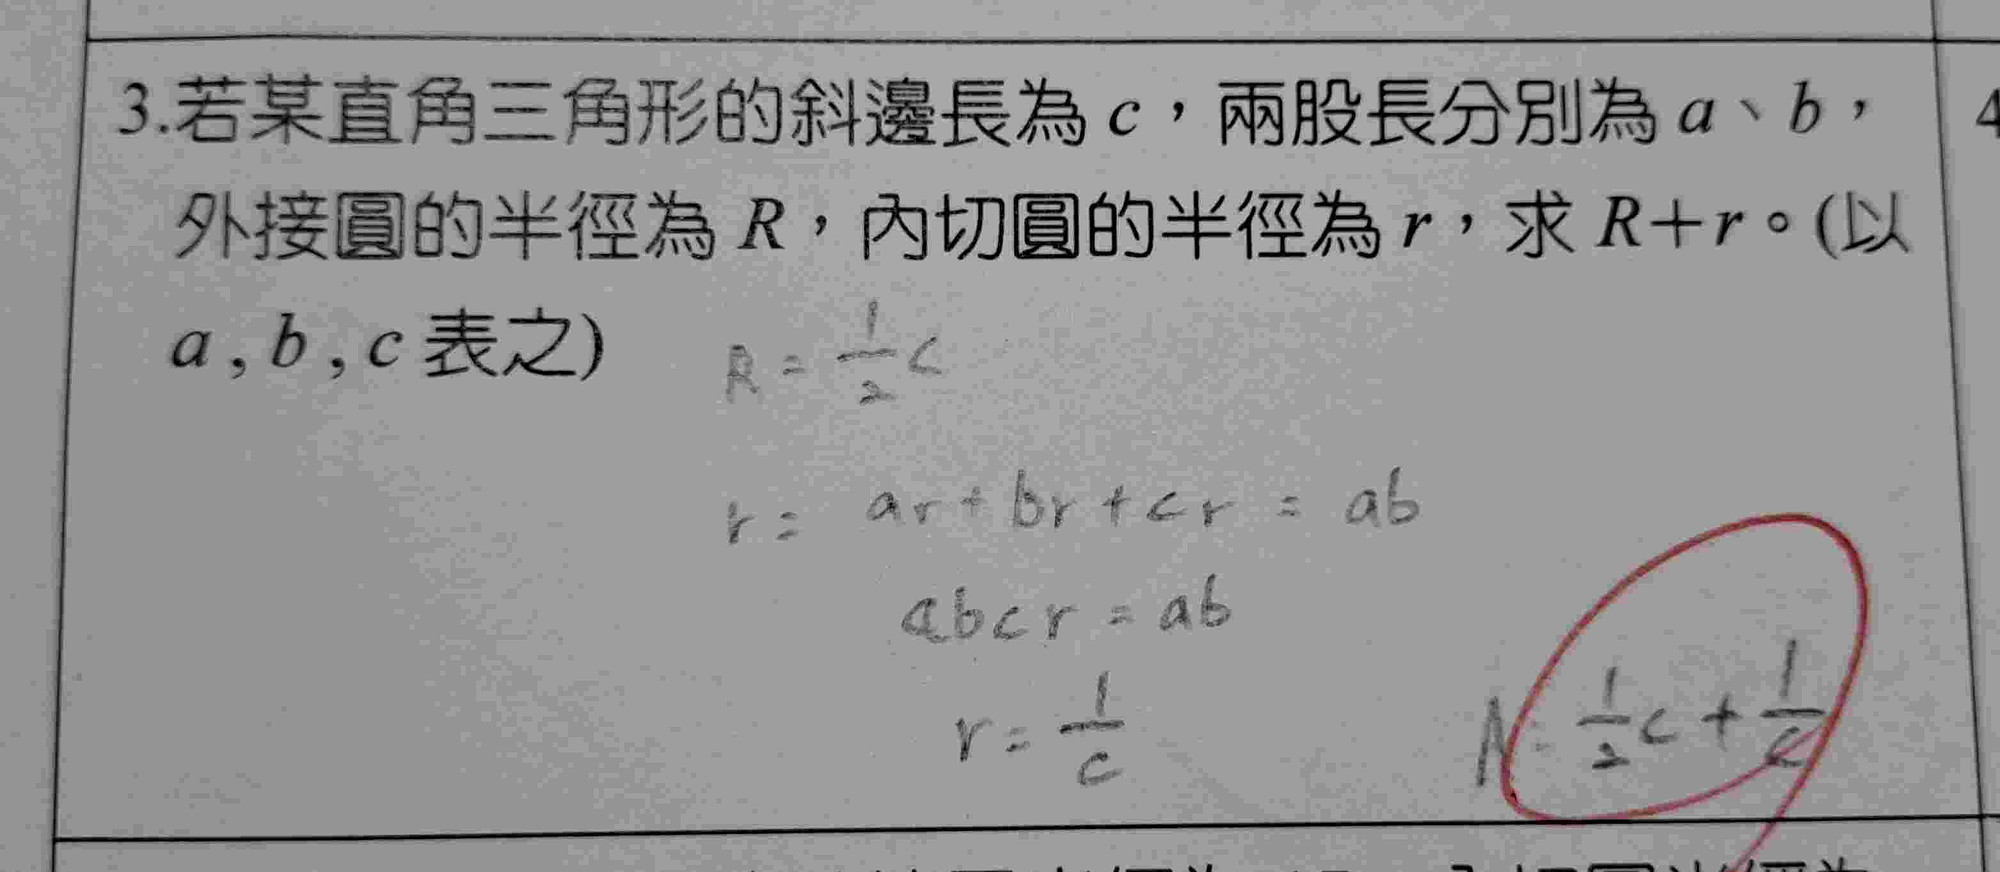 3.若某直角三角形的斜邊長為 c，兩股長分別為 a、b，
4
外接圓的半徑為 R，內切圓的半徑為 r，求 R+r。(以
a , b , c 表之)
R = 1/2 c
r = ar + br + cr = ab
abcr = ab
r = 1/c
A: 1/2 c + 1/c